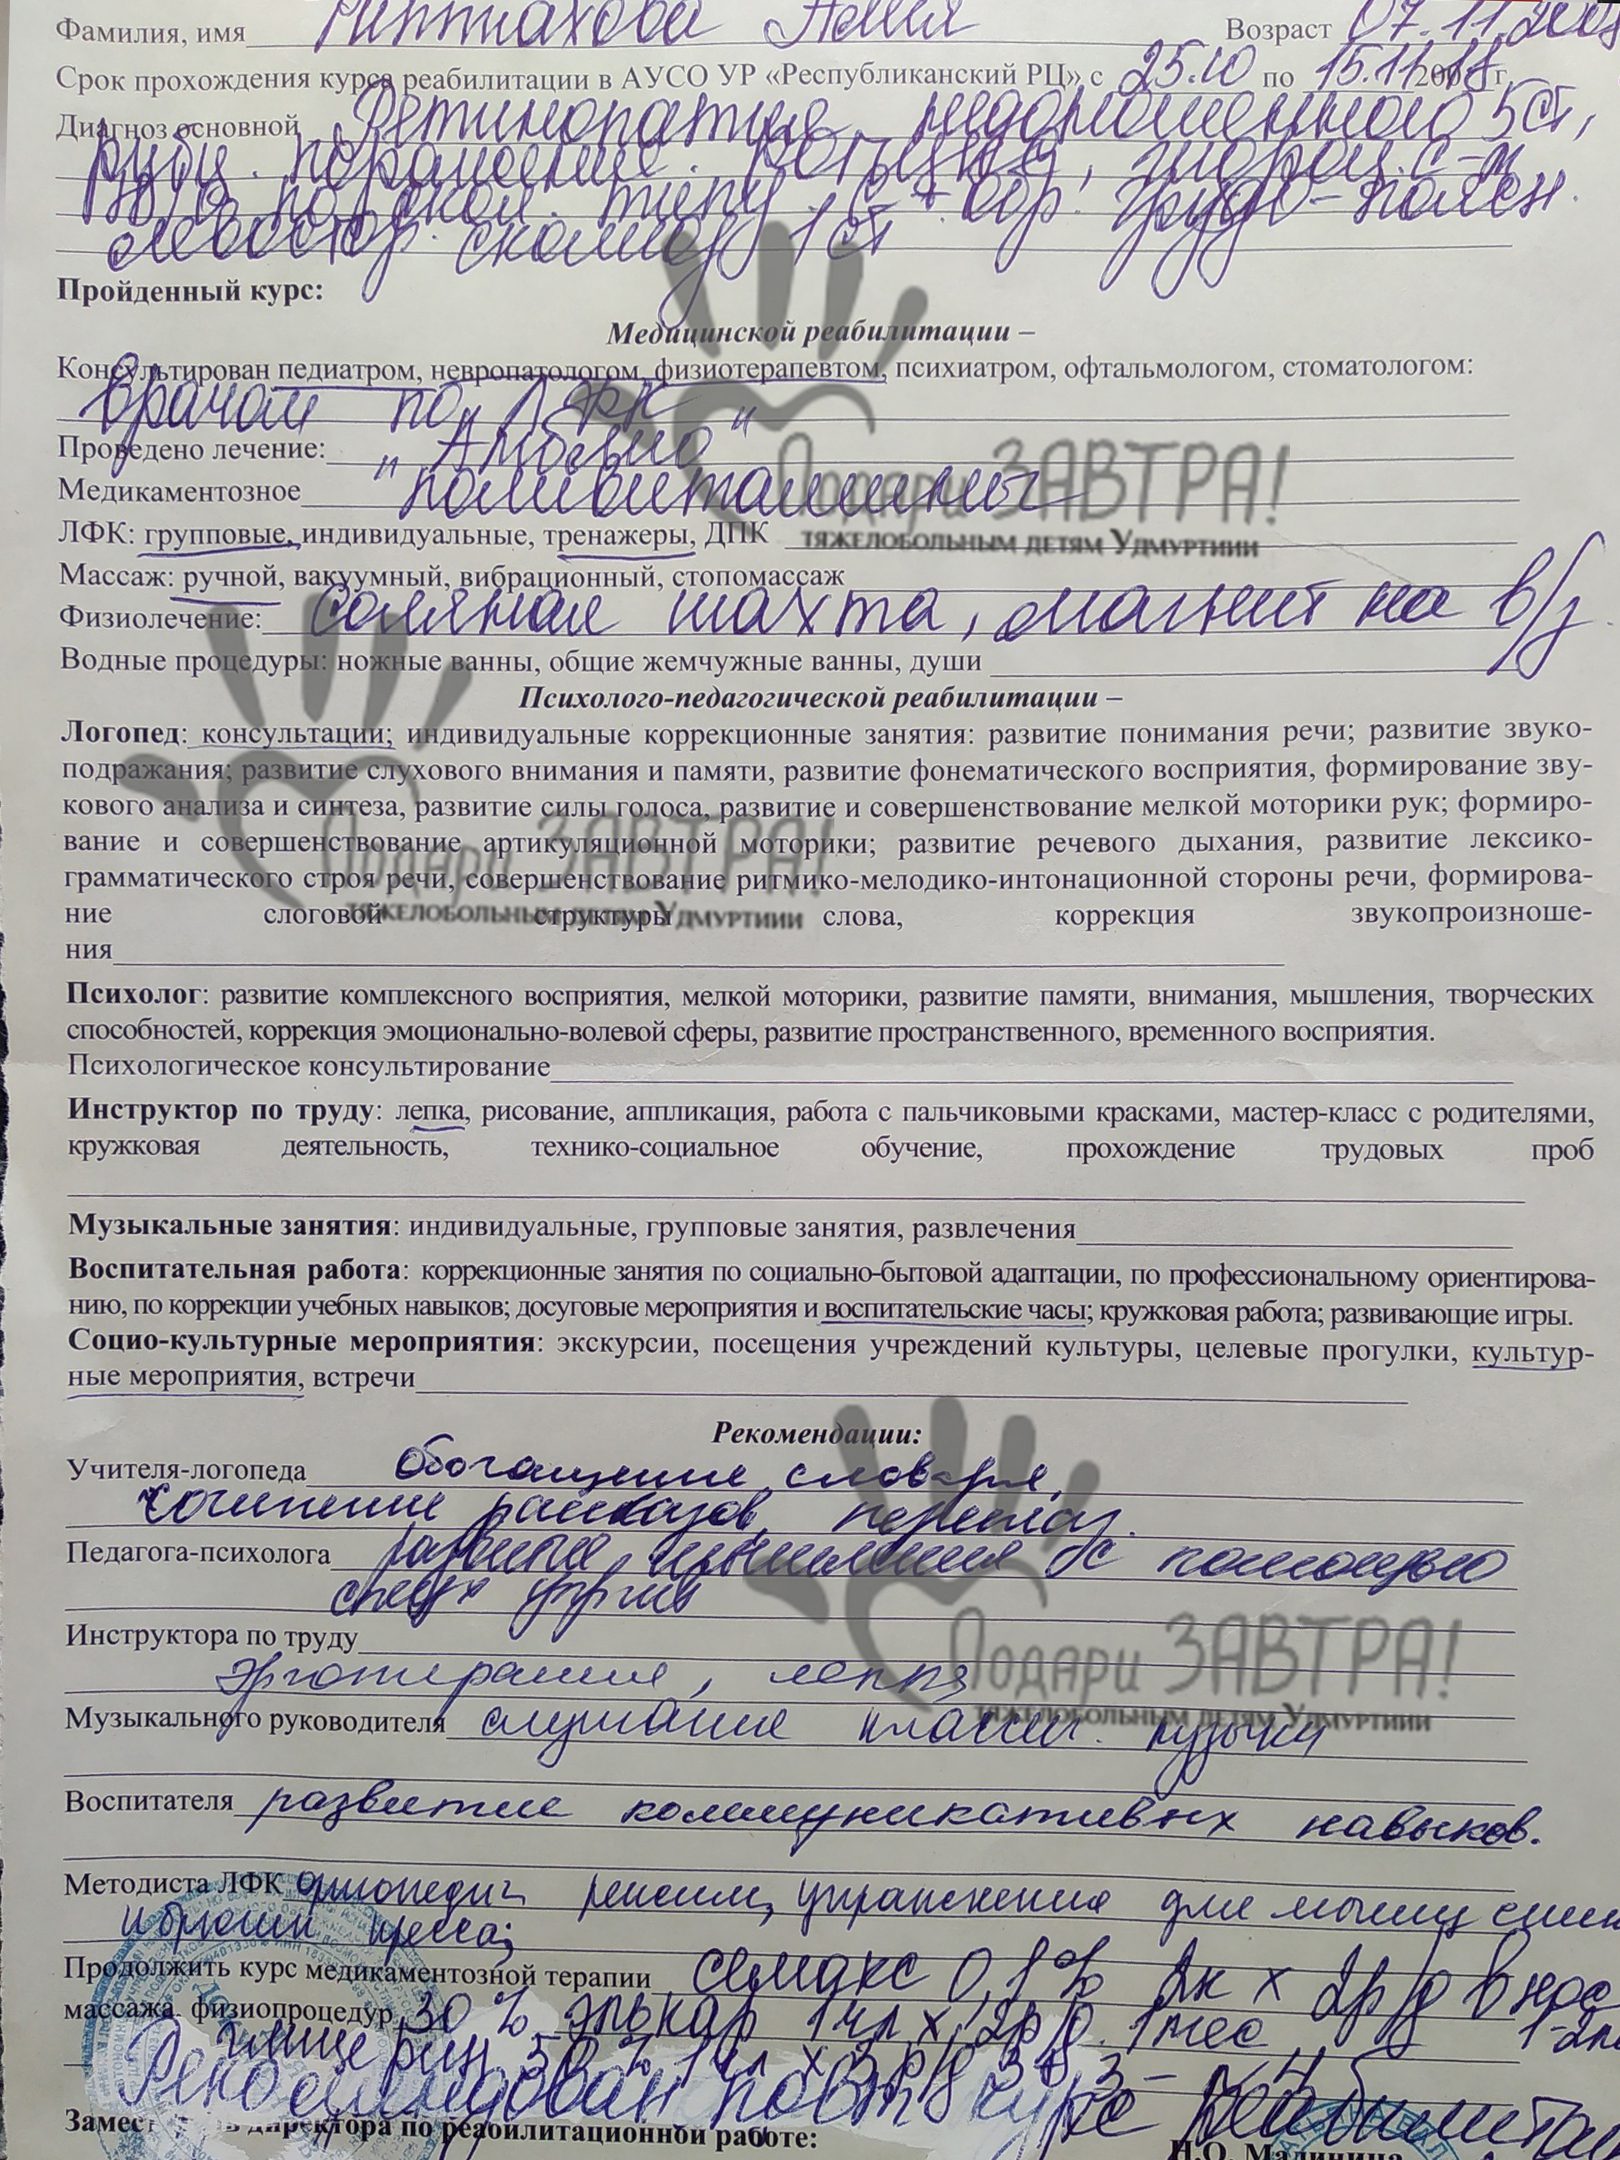 Фамилия, имя Возраст 07.11.
Срок прохождения курса реабилитации в АУСО УР «Республиканский РЦ» с 25.10 по 15.11 200 г.
Диагноз основной Ретинопатия недоношенного 5 ст,
рубц. поражение. гидроц. с-м
по типу
левостор. сколиоз 1 ст грудо-поясн.
Пройденный курс:
Медицинской реабилитации –
Консультирован педиатром, невропатологом, физиотерапевтом, психиатром, офтальмологом, стоматологом:
Врачом по ЛФК
Проведено лечение:
Медикаментозное "поливитамины
ЛФК: групповые, индивидуальные, тренажеры, ДПК
Массаж: ручной, вакуумный, вибрационный, стопомассаж
Физиолечение: соляная шахта, магнит на в/з
Водные процедуры: ножные ванны, общие жемчужные ванны, души
Психолого-педагогической реабилитации –
Логопед: консультации; индивидуальные коррекционные занятия: развитие понимания речи; развитие звуко-
подражания; развитие слухового внимания и памяти, развитие фонематического восприятия, формирование зву-
кового анализа и синтеза, развитие силы голоса, развитие и совершенствование мелкой моторики рук; формиро-
вание и совершенствование артикуляционной моторики; развитие речевого дыхания, развитие лексико-
грамматического строя речи, совершенствование ритмико-мелодико-интонационной стороны речи, формирова-
ние слоговой структуры слова, коррекция звукопроизноше-
ния
Психолог: развитие комплексного восприятия, мелкой моторики, развитие памяти, внимания, мышления, творческих
способностей, коррекция эмоционально-волевой сферы, развитие пространственного, временного восприятия.
Психологическое консультирование
Инструктор по труду: лепка, рисование, аппликация, работа с пальчиковыми красками, мастер-класс с родителями,
кружковая деятельность, технико-социальное обучение, прохождение трудовых проб
Музыкальные занятия: индивидуальные, групповые занятия, развлечения
Воспитательная работа: коррекционные занятия по социально-бытовой адаптации, по профессиональному ориентирова-
нию, по коррекции учебных навыков; досуговые мероприятия и воспитательские часы; кружковая работа; развивающие игры.
Социо-культурные мероприятия: экскурсии, посещения учреждений культуры, целевые прогулки, культур-
ные мероприятия, встречи
Рекомендации:
Учителя-логопеда обогащение словаря,
сочинение рассказов, пересказ.
Педагога-психолога развитие мышления с помощью
спец-х упр-ий
Инструктора по труду
эрготерапия, лепка
Музыкального руководителя слушание классич. музыки
Воспитателя развитие коммуникативных навыков.
Методиста ЛФК ортопедич режим, упражнения для мышц спин
и брюшн пресса;
Продолжить курс медикаментозной терапии семакс 0,1% 2к х 2р/д в нос
массажа, физиопроцедур 30% элькар 1чл х 2р/д 1 мес
глицерин 30% 1чл х 3р/д
Рекомендован повт курс реабилитац
Замест директора по реабилитационной работе: Н.О. Малинина
Подари ЗАВТРА!
тяжелобольным детям Удмуртиии
Подари ЗАВТРА!
тяжелобольным детям Удмуртиии
Подари ЗАВТРА!
тяжелобольным детям Удмуртиии